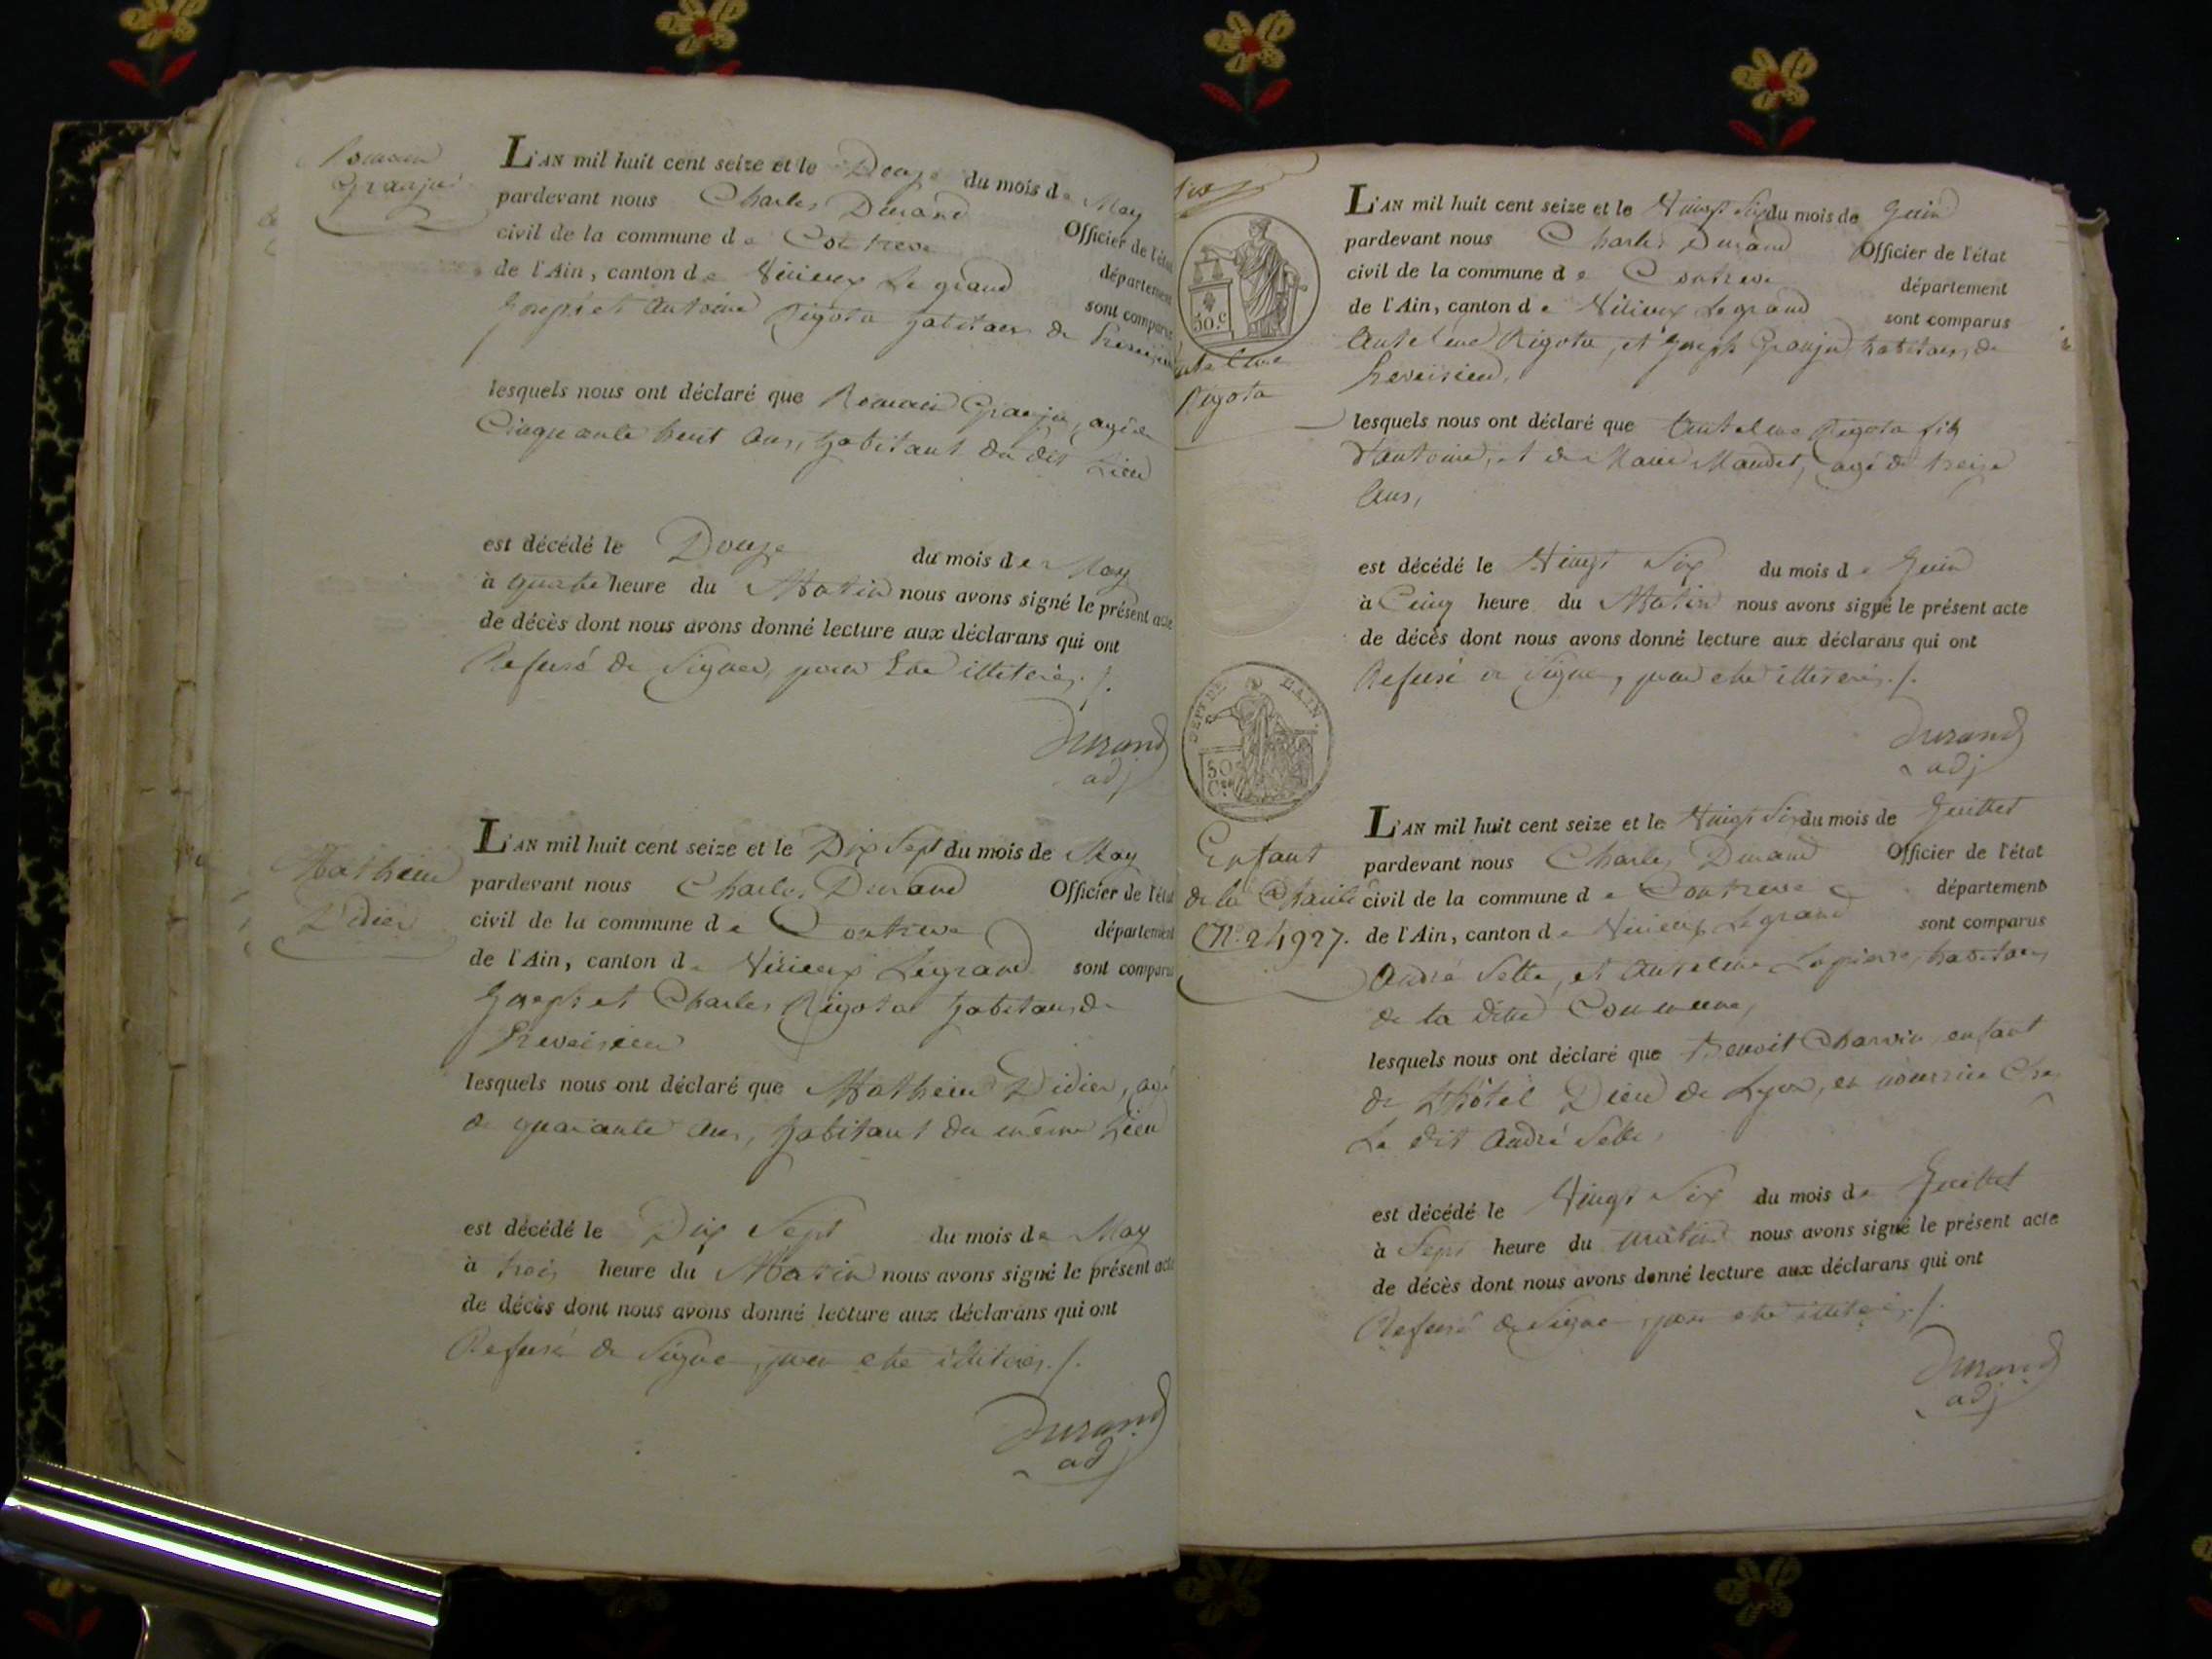 Romain
Granju
L'AN mil huit cent seize et le Douze du mois de May
pardevant nous Charles Durand Officier de l'état
civil de la commune de Contrevoz département
de l'Ain, canton de Virieux Le grand sont comparus
Joseph et Antoine Rigotu habitans de
lesquels nous ont déclaré que Romain Granju, agé de
Cinquante huit ans, habitant du dit Lieu
est décédé le Douze du mois de May
à quatre heure du Matin nous avons signé le présent acte
de décès dont nous avons donné lecture aux déclarans qui ont
Refusé de Signer, pour Etre illiterés ./.
Durand
adj
Mathieu
Didier
L'AN mil huit cent seize et le Dix Sept du mois de May
pardevant nous Charles Durand Officier de l'état
civil de la commune de département
de l'Ain, canton de Virieux Legrand sont comparus
Joseph et Charles Rigotu habitans de
Preveisieu
lesquels nous ont déclaré que Mathieu Didier, agé
de quarante ans, habitant du même Lieu
est décédé le Dix Sept du mois de May
à trois heure du Matin nous avons signé le présent acte
de décès dont nous avons donné lecture aux déclarans qui ont
Refusé de Signer, pour etre illiterés ./.
Durand
adj
50.c
Antelme
Rigotu
L'AN mil huit cent seize et le Vingt Six du mois de Juin
pardevant nous Charles Durand Officier de l'état
civil de la commune de département
de l'Ain, canton de Virieux Legrand sont comparus
Antelme Rigotu, et Joseph Granju habitans de
Preveisieu,
lesquels nous ont déclaré que Antelme Rigotu fils
d'antoine, et de Marie Mandet, agé de treize
Ans,
est décédé le Vingt Six du mois de Juin
à Cinq heure du Matin nous avons signé le présent acte
de décès dont nous avons donné lecture aux déclarans qui ont
Refusé de Signer, pour etre illiterés ./.
Durand
adj
DEPT DE L'AIN.
50
Cen
Enfant
de la Charité
N.º 24927.
L'AN mil huit cent seize et le Vingt Six du mois de Juillet
pardevant nous Charles Durand Officier de l'état
civil de la commune de département
de l'Ain, canton de Virieux Legrand sont comparus
André Sette, et Antelme Lapierre, habitans
de la dite Commune,
lesquels nous ont déclaré que Benoit Charvin, enfant
de L'hôtel Dieu de Lyon, en nourrice Chez
Le dit André Sette,
est décédé le Vingt Six du mois de Juillet
à Sept heure du matin nous avons signé le présent acte
de décès dont nous avons donné lecture aux déclarans qui ont
Refusé de Signer, pour etre illiterés ./.
Durand
adj